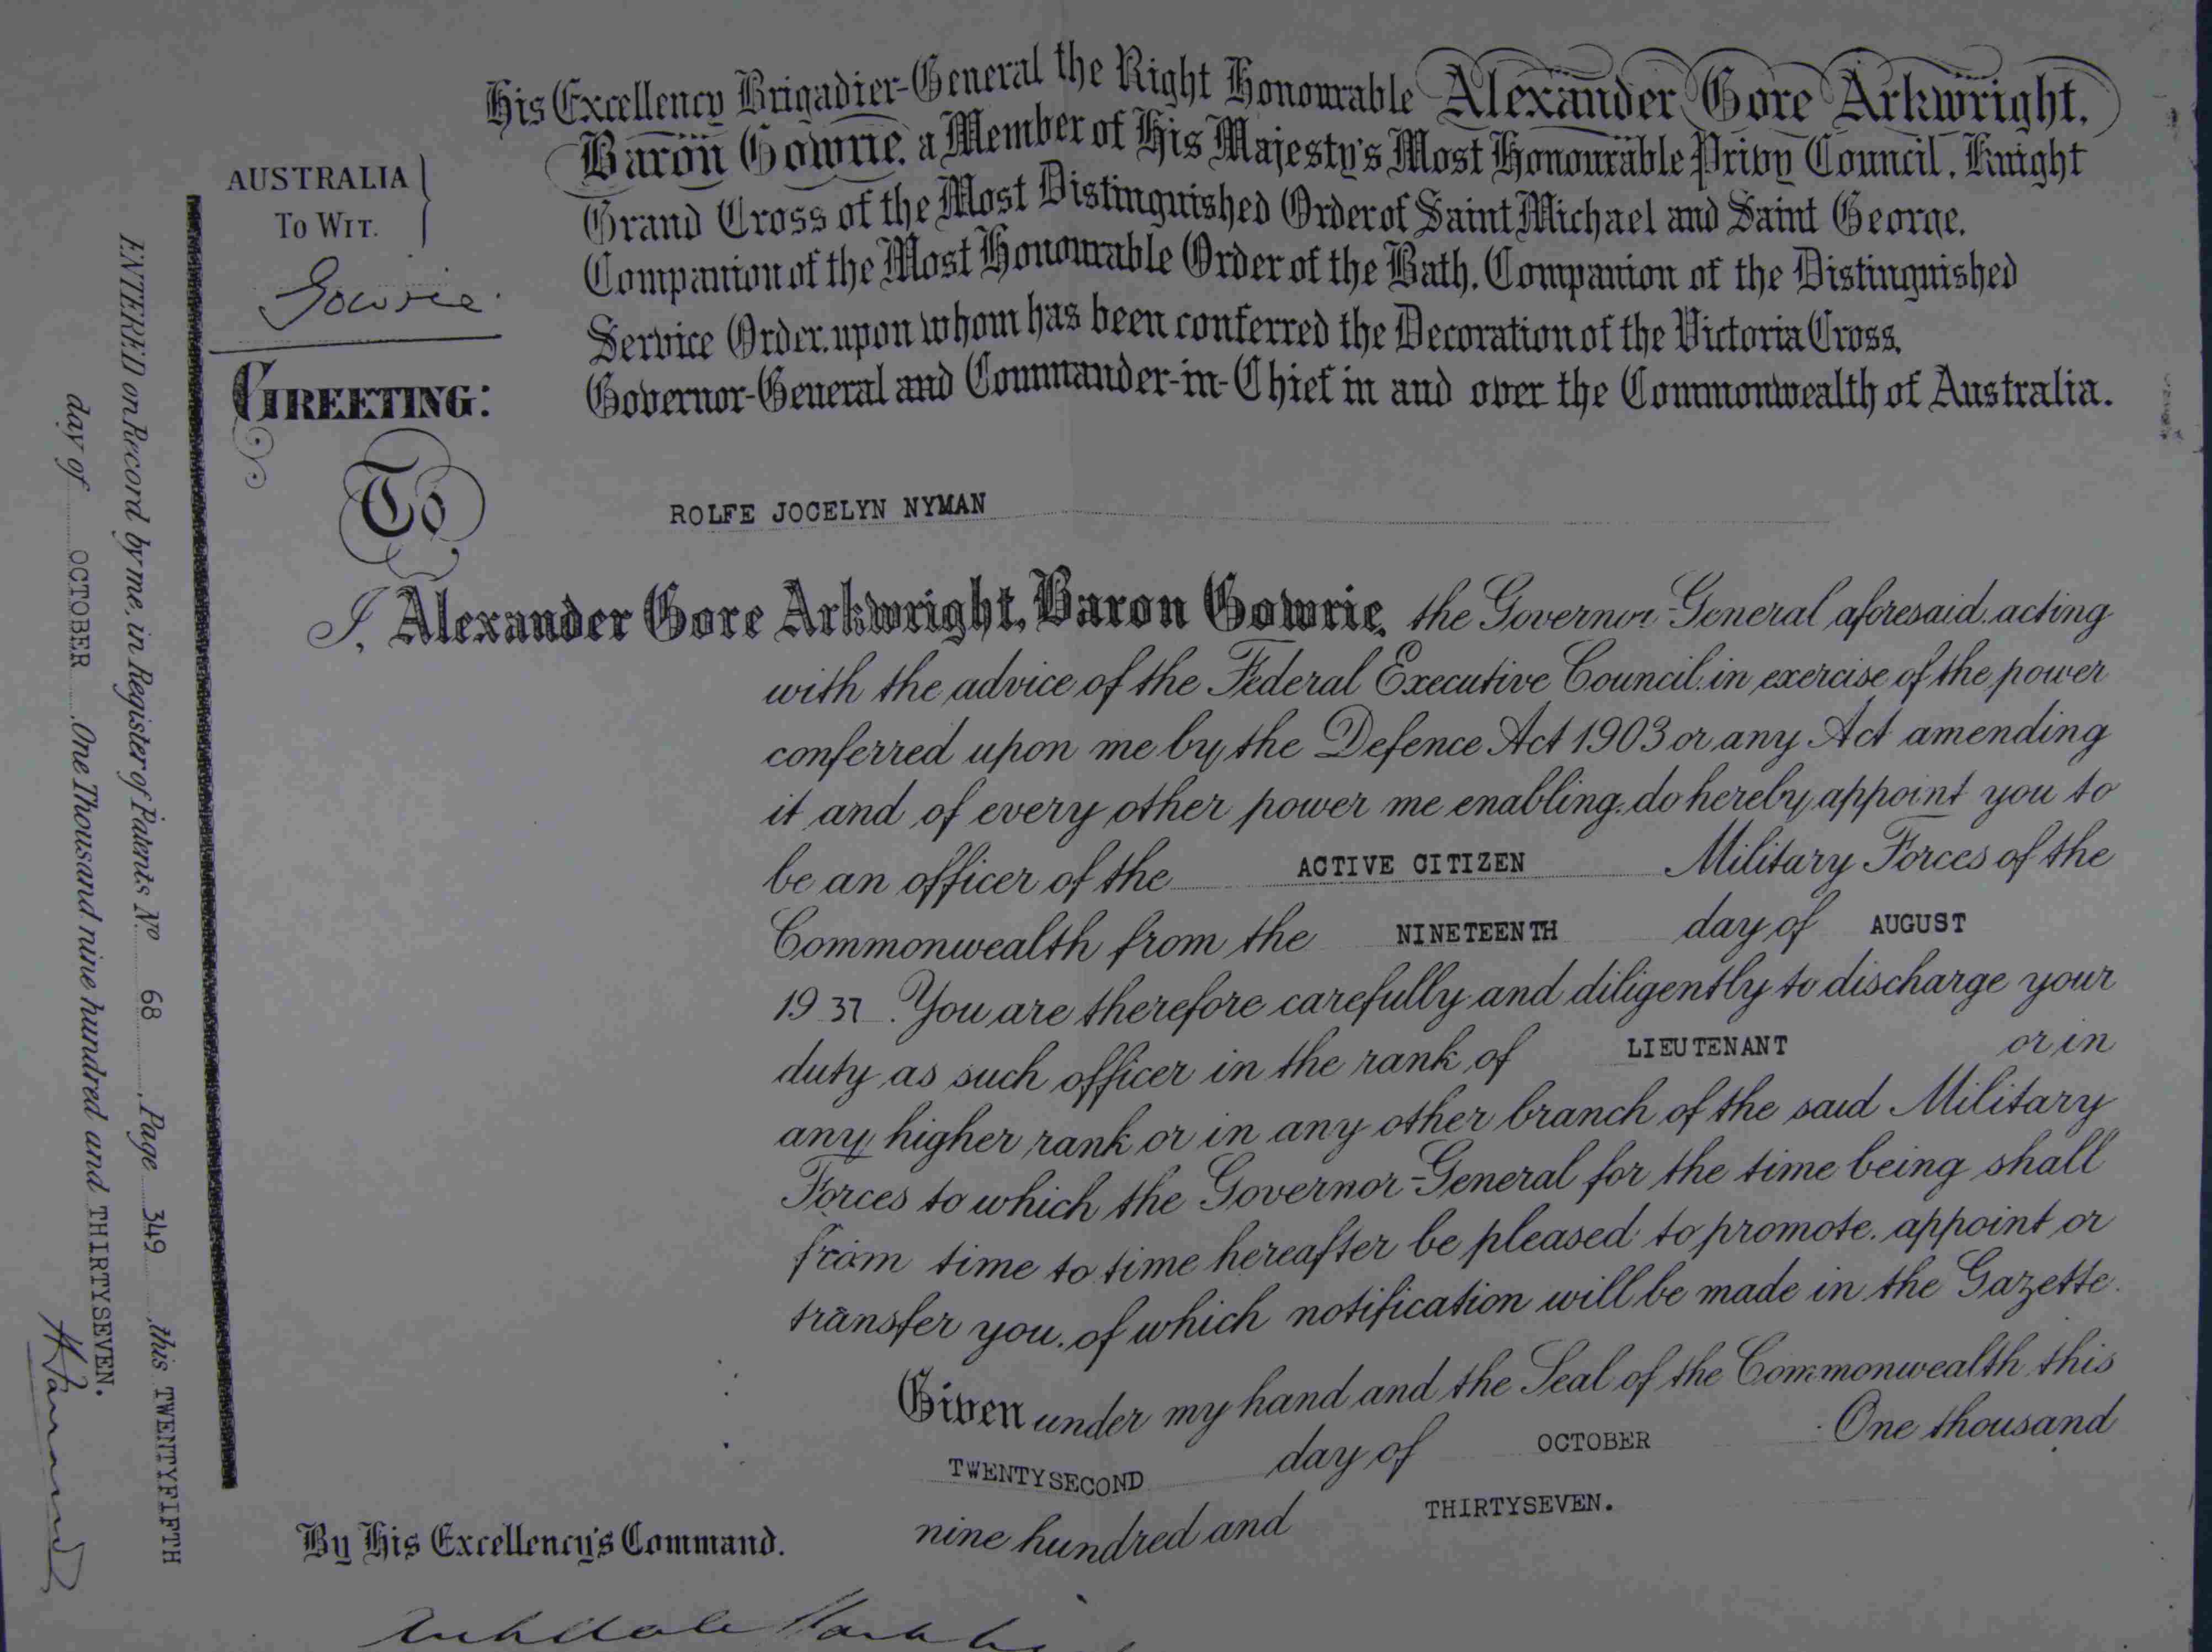 His Excellency Brigadier-General the Right Honourable Alexander Gore Arkwright,
Baron Gowrie, a Member of His Majesty's Most Honourable Privy Council, Knight
Grand Cross of the Most Distinguished Order of Saint Michael and Saint George,
Companion of the Most Honourable Order of the Bath, Companion of the Distinguished
Service Order, upon whom has been conferred the Decoration of the Victoria Cross,
Governor-General and Commander-in-Chief in and over the Commonwealth of Australia.
AUSTRALIA
TO WIT.
Gowrie
GREETING:
To
ROLFE JOCELYN NYMAN
I, Alexander Gore Arkwright, Baron Gowrie, the Governor-General aforesaid, acting
with the advice of the Federal Executive Council, in exercise of the power
conferred upon me by the Defence Act 1903 or any Act amending
it and of every other power me enabling, do hereby appoint you to
be an officer of the ACTIVE CITIZEN Military Forces of the
Commonwealth from the NINETEENTH day of AUGUST
1937. You are therefore carefully and diligently to discharge your
duty as such officer in the rank of LIEUTENANT or in
any higher rank or in any other branch of the said Military
Forces to which the Governor-General for the time being shall
from time to time hereafter be pleased to promote, appoint or
transfer you, of which notification will be made in the Gazette.
Given under my hand and the Seal of the Commonwealth this
TWENTYSECOND day of OCTOBER One thousand
nine hundred and THIRTYSEVEN.
By His Excellency's Command.
ENTERED on Record by me, in Register of Patents No 68, Page 349, this TWENTYFIFTH
day of OCTOBER, One Thousand nine hundred and THIRTYSEVEN.